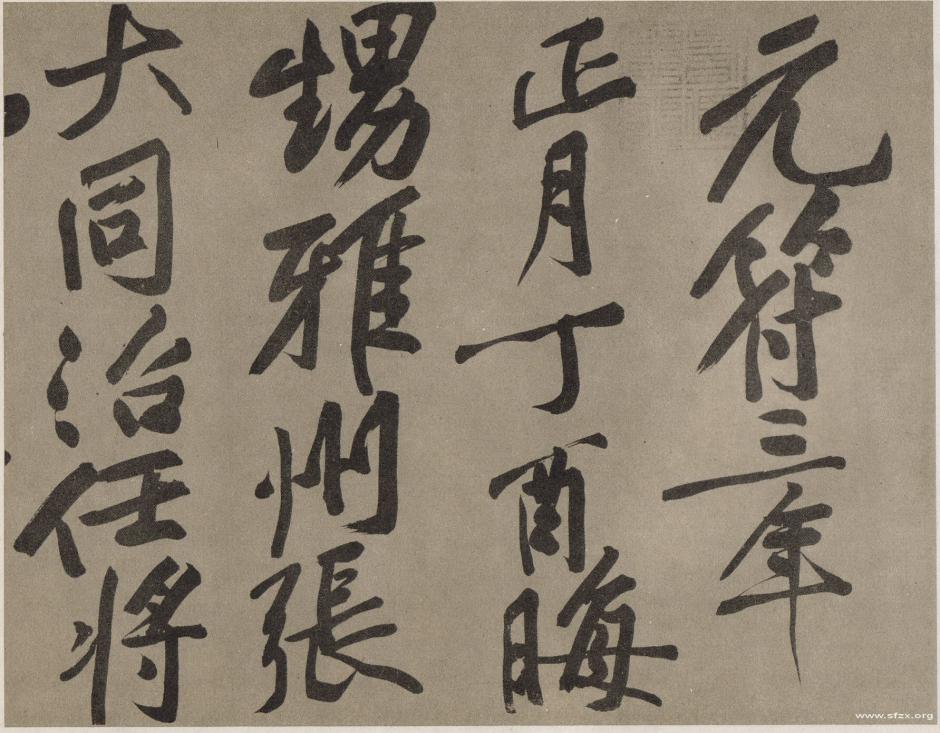 元符三年
正月丁酉晦
甥雅州張
大同治任將
www.sfzx.org